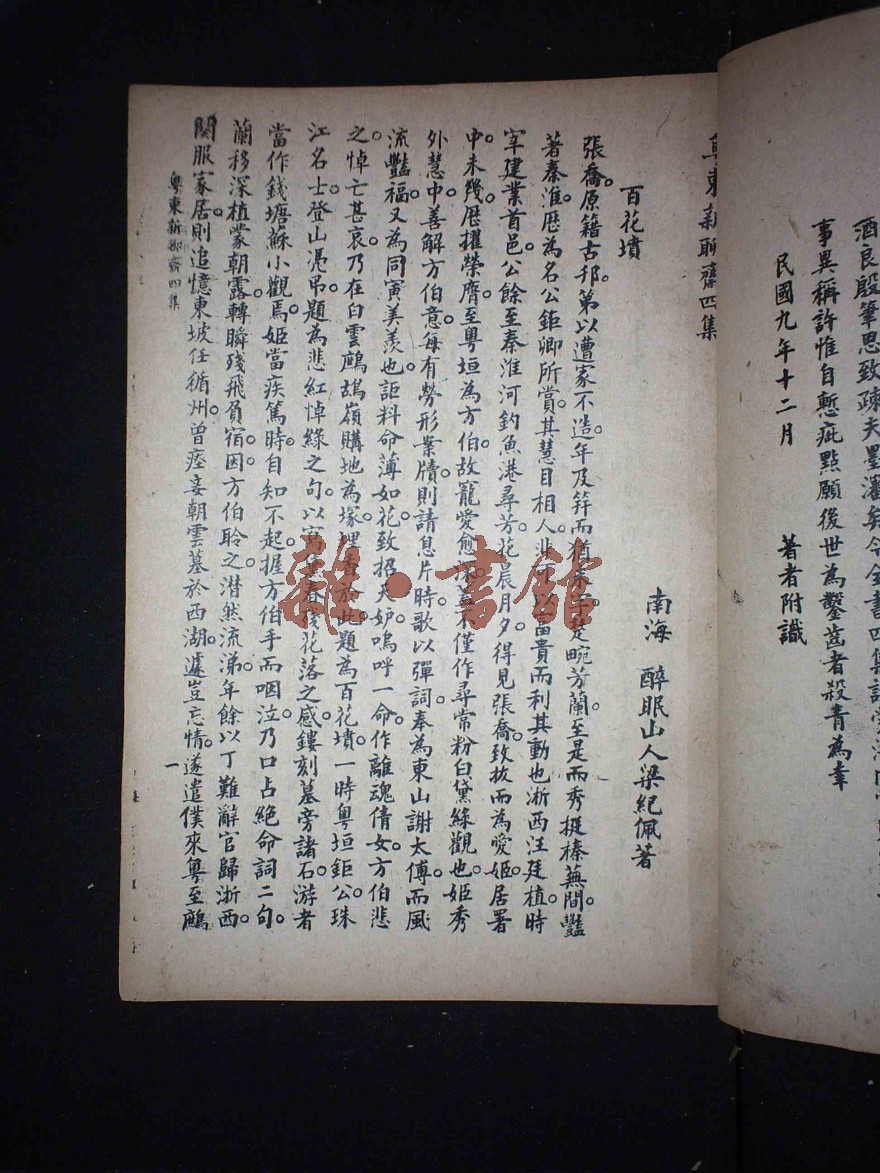 酒良殷筆思致疎夫墨瀋
事異稱許惟自慙疵點願後世為鑿齒者殺青為幸
民國九年十二月 著者附識
粵東新聊齋四集
南海 醉眠山人梁紀佩著
百花墳
張喬。原籍古邗。第以遭家不造。年及笄而猶 畹芳蘭。至是而秀挺榛蕪。間豔
著秦淮。歷為名公鉅卿所賞。其慧目相人。非 富貴而利其動也。浙西汪廷植。時
宰建業首邑。公餘至秦淮河釣魚港尋芳。花晨月夕。得見張喬。致拔而為愛姬。居署
中。未幾。歷擢榮膺。至粵垣為方伯。故寵愛愈深。蓋不僅作尋常粉白黛綠觀也。姬秀
外慧中。善解方伯意。每有勞形案牘。則請息片時。歌以彈詞。奉為東山謝太傅。而風
流豔福。又為同寅羨羨也。詎料命薄如花。致招天妒。嗚呼一命。作離魂倩女。方伯悲
之。悼亡甚哀。乃在白雲鷓鴣嶺。購地為塚。埋香於此。題為百花墳。一時粵垣鉅公。珠
江名士。登山憑吊。題為悲紅悼綠之句。以寓 春殘花落之感。鏤刻墓旁諸石。游者
當作錢塘蘇小觀焉。姬當疾篤時。自知不起。握方伯手而咽泣。乃口占絕命詞二句。
蘭移深植蒙朝露。轉瞬殘飛負宿因。方伯聆之。潸然流涕。年餘。以丁難辭官歸浙西。
闋服家居。則追憶東坡任循州。曾瘞妾朝雲墓於西湖。遽豈忘情。遂遣僕來粵。至鷓
粵東新聊齋四集 一
雜·書館